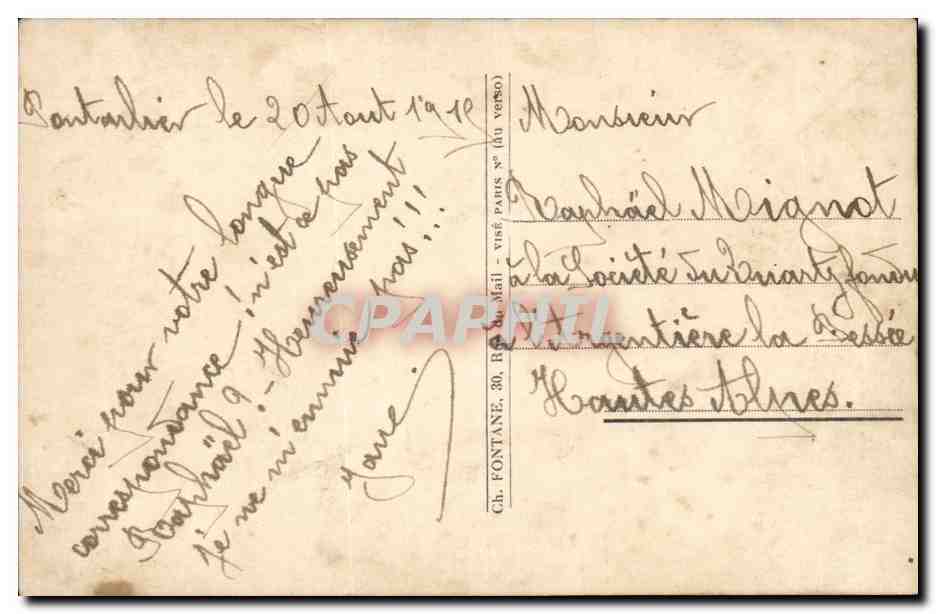 Pontarlier le 20 Aout 1919
Merci pour votre longue
correspondance, n'est ce pas
Raphäel? - Heureusement
je ne m'ennuie pas!!!
Jane.
Ch. FONTANE, 30, Rue du Mail - VISÉ, PARIS N° (au verso)
Monsieur
Raphäel Mignot
à la Société du Quartz fondu
à l'Argentière la Bessée
Hautes Alpes.
CPARHII